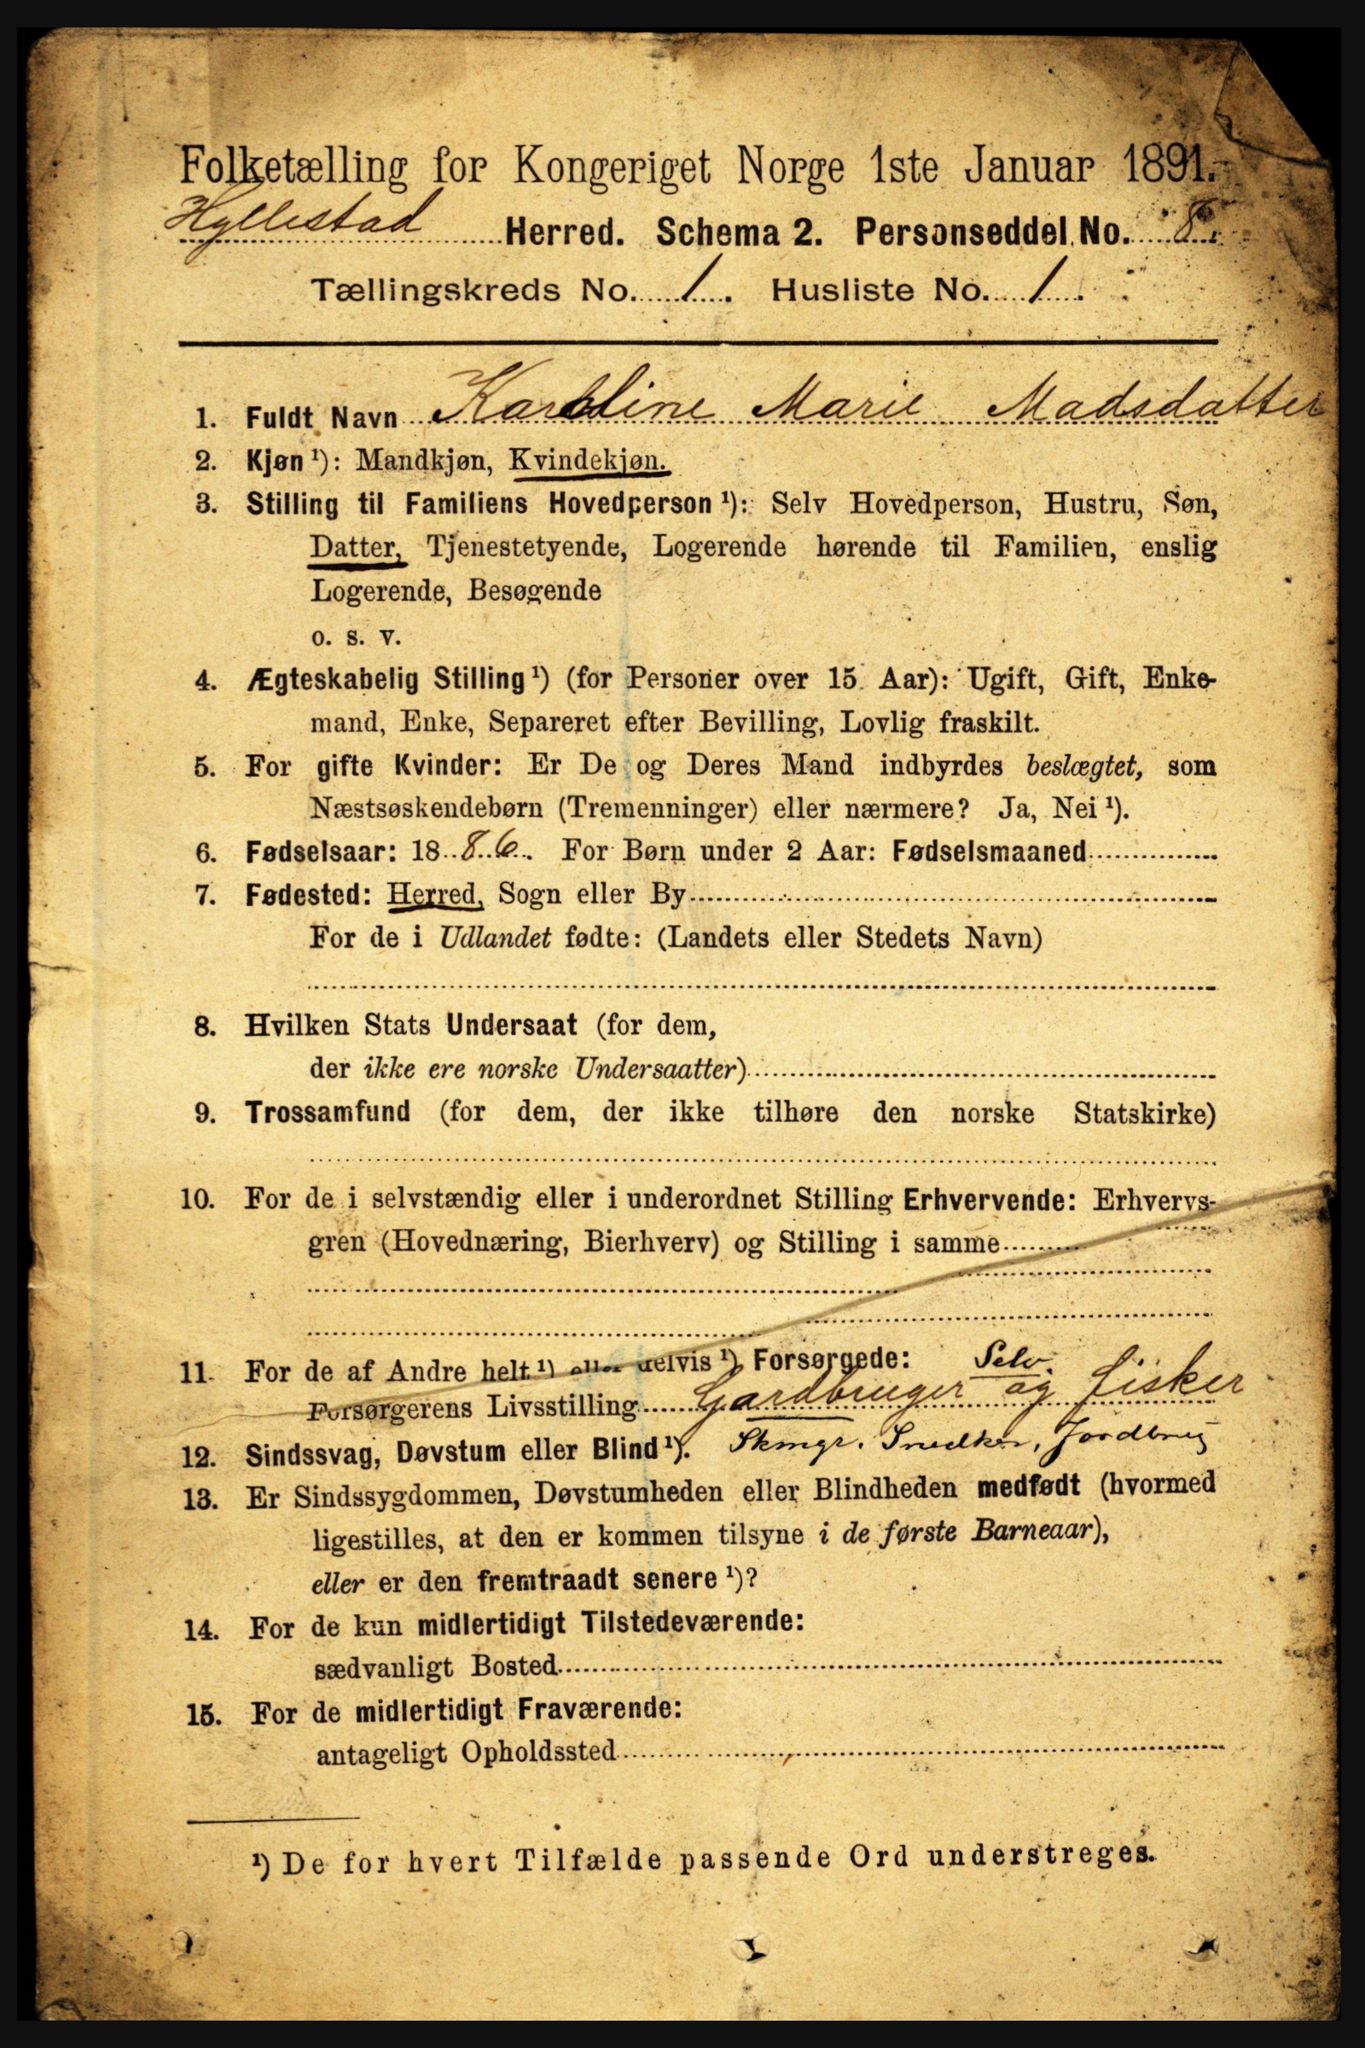 Folketælling for Kongeriget Norge 1ste Januar 1891.
Hyllestad Herred. Schema 2. Personseddel No. 8.
Tællingskreds No. 1. Husliste No. 1.
1. Fuldt Navn Karoline Marie Madsdatter
2. Kjøn ¹): Mandkjøn, Kvindekjøn.
3. Stilling til Familiens Hovedperson ¹): Selv Hovedperson, Hustru, Søn,
Datter, Tjenestetyende, Logerende hørende til Familien, enslig
Logerende, Besøgende
o. s. v.
4. Ægteskabelig Stilling ¹) (for Personer over 15 Aar): Ugift, Gift, Enke-
mand, Enke, Separeret efter Bevilling, Lovlig fraskilt.
5. For gifte Kvinder: Er De og Deres Mand indbyrdes beslægtet, som
Næstsøskendebørn (Tremenninger) eller nærmere? Ja, Nei ¹).
6. Fødselsaar: 1886. For Børn under 2 Aar: Fødselsmaaned
7. Fødested: Herred, Sogn eller By
For de i Udlandet fødte: (Landets eller Stedets Navn)
8. Hvilken Stats Undersaat (for dem,
der ikke ere norske Undersaatter)
9. Trossamfund (for dem, der ikke tilhøre den norske Statskirke)
10. For de i selvstændig eller i underordnet Stilling Erhvervende: Erhvervs-
gren (Hovednæring, Bierhverv) og Stilling i samme
11. For de af Andre helt ¹) eller delvis ¹) Forsørgede: Selv.
Forsørgerens Livsstilling Gardbruger og fisker
12. Sindssvag, Døvstum eller Blind ¹). Snedker, Jordbrug
13. Er Sindssygdommen, Døvstumheden eller Blindheden medfødt (hvormed
ligestilles, at den er kommen tilsyne i de første Barneaar),
eller er den fremtraadt senere ¹)?
14. For de kun midlertidigt Tilstedeværende:
sædvanligt Bosted
15. For de midlertidigt Fraværende:
antageligt Opholdssted
¹) De for hvert Tilfælde passende Ord understreges.